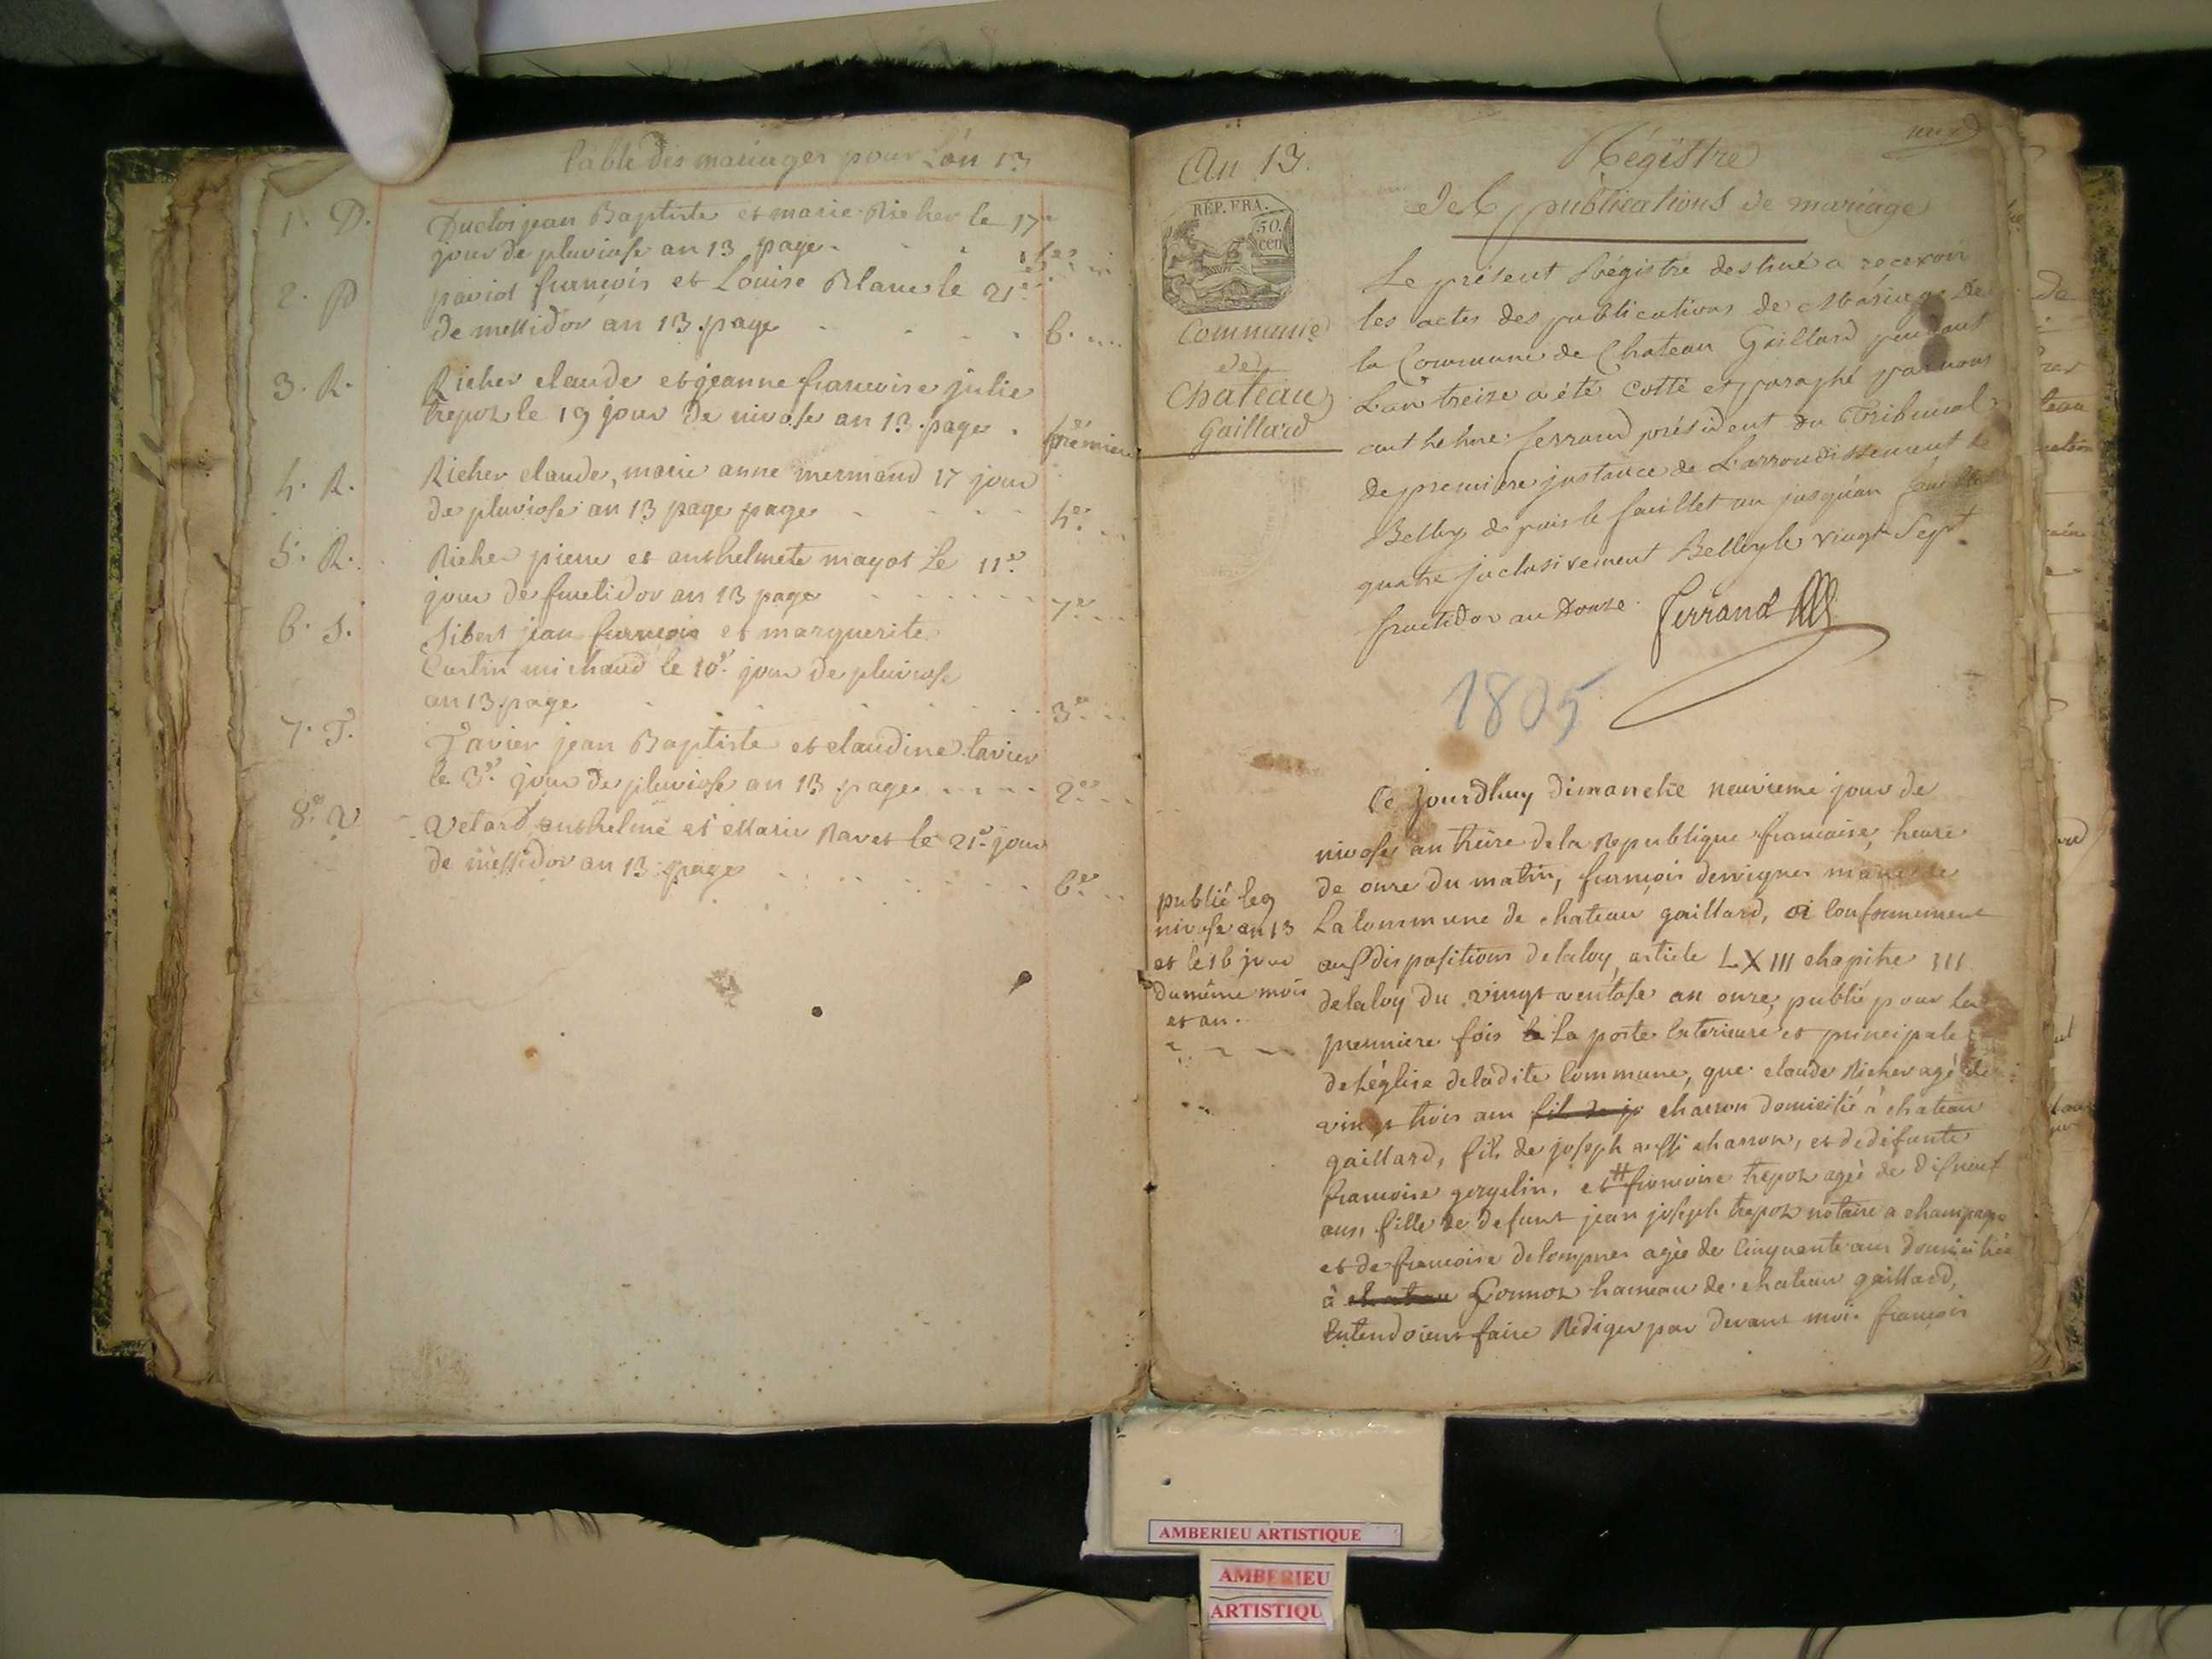 table des mariages pour L'an 13
1. D. Duclos jean Baptiste et marie Richer le 17e
jour de pluviose an 13 page
2. P paviot françois et Louise Blanc le 21e
de messidor an 13 page 6.
3. R. Richer claude et jeanne francoise julie
trepoz le 19 jour de nivose an 13 page premiere
4. R. Richer claude, marie anne mermand 17 jour
de pluviose an 13 page page 4e
5. R. Richer pierre et anthelmete mayot Le 11e
jour de fructidor an 13 page 7e
6. S. Sibert jean francois et marguerite
michaud le 10e jour de pluviose
an 13 page 3e
7. T. Tavier jean Baptiste et claudine tavier
le 3e jour de pluviose an 13 page 2e
8e V Vetard anthelme et Marie Ravet le 21e jour
de messidor an 13 page 6e
An 13.
REP. FRA.
50.
cen
Commune
de
Chateau
Gaillard
Régistre
des publications de mariage
Le présent Régistre destiné a recevoir
les actes des publications de Mariage de
la Commune de Chateau Gaillard pendant
L'an treize a été cotté et paraphé par nous
anthelme ferrand président du Tribunal
de premiere instance de L'arrondissement de
Belley depuis le feuillet un jusqu'au feuillet
quatre inclusivement Belley le vingt Sept
fructidor an Douze. ferrand
1805
Ce jourdhuy dimanche neuvieme jour de
nivose an treize de la Republique francaise, heure
de onze du matin, francois dervignes maire de
La commune de chateau gaillard, ai conformement
aux dispositions de la loy, article LXIII chapitre III
de la loy du vingt ventose an onze, publié pour la
premiere fois à la porte exterieure et principale
de l'église de ladite commune, que claude Richer agé de
vingt trois ans fils de jo charron domicilié à chateau
gaillard, fils de joseph aussi charron, et de defunte
francoise gerzelin, et # francoise trepoz agée de disneuf
ans, fille de defunt jean joseph trepoz notaire a champagne
et de francoise delompnes agée de Cinquante ans domiciliée
à chateau Cormoz hameau de chateau gaillard,
Entendoient faire Rediger par devant moi françois
publié le 9
nivose an 13
et le 16 jour
du même mois
et an.
AMBERIEU ARTISTIQUE
AMBERIEU
ARTISTIQU